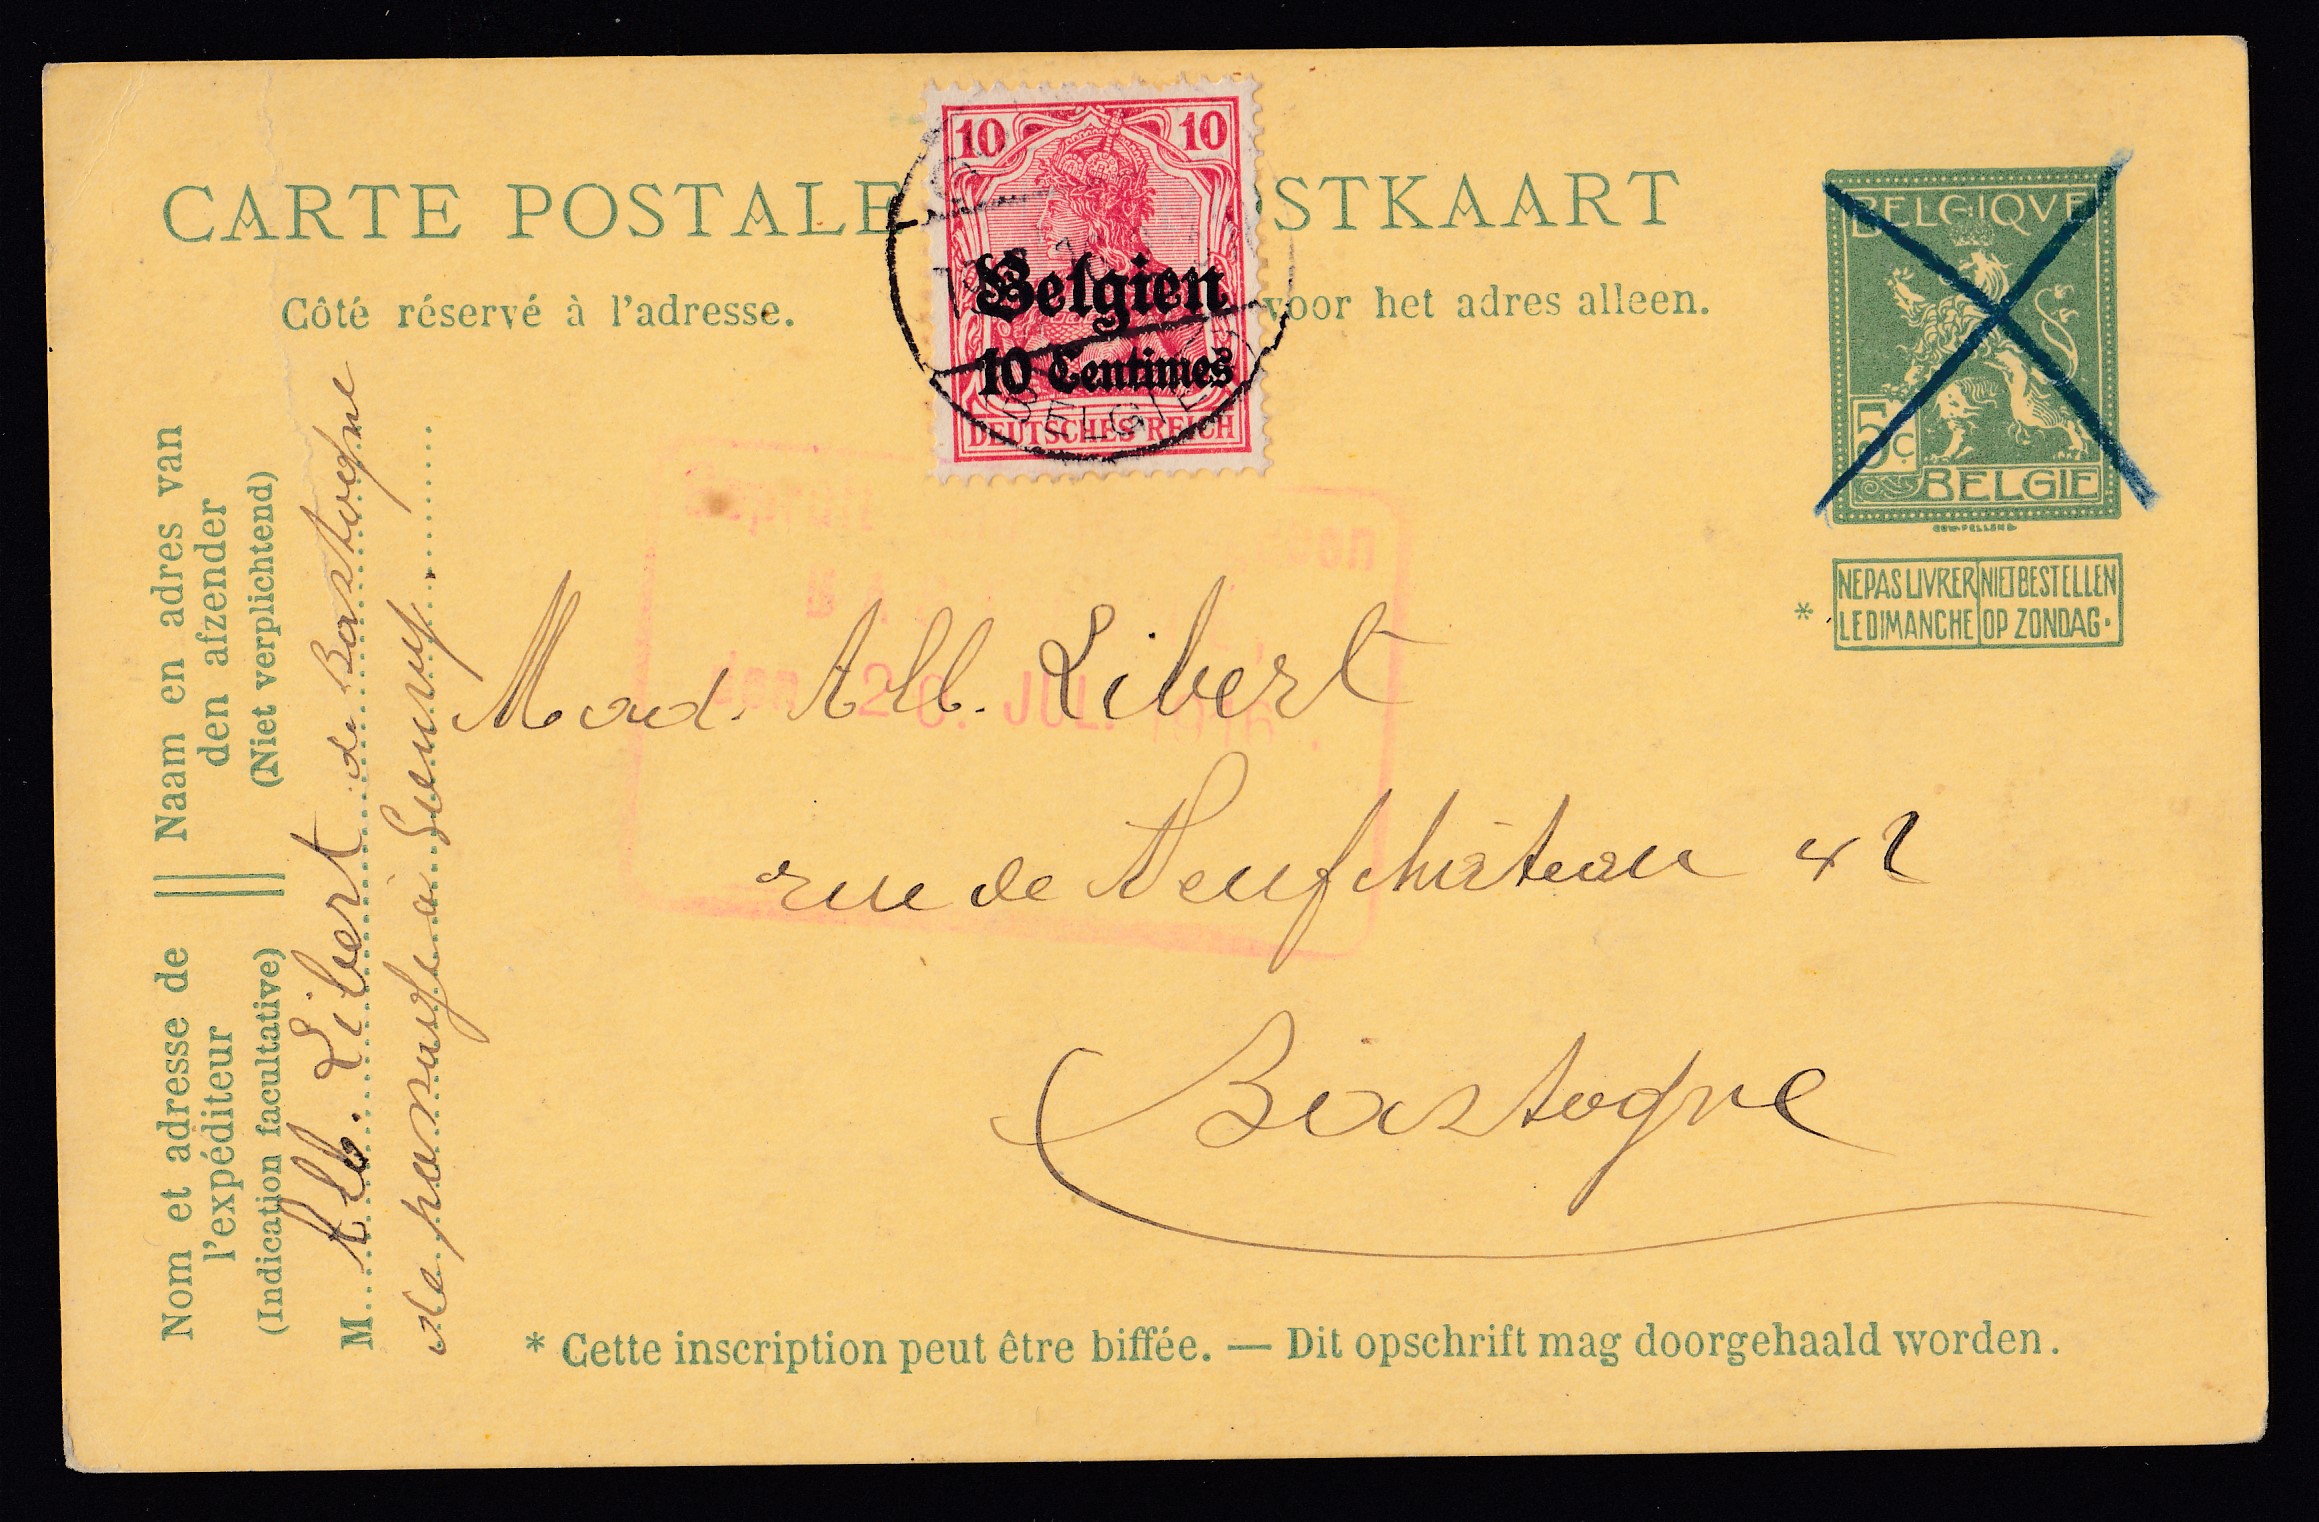 CARTE POSTALE OSTKAART
Côté réservé à l'adresse. voor het adres alleen.
10 10
Belgien
10 Centimes
DEUTSCHES REICH
BELGIEN
BELGIQVE
5 C.
BELGIE
NE PAS LIVRER NIET BESTELLEN
LE DIMANCHE OP ZONDAG.
*
Naam en adres van
den afzender
(Niet verplichtend)
Nom et adresse de
l'expéditeur
(Indication facultative)
M. Alb. Libert de Bastogne
de passage à
den 20. JUL. 1916.
Mad. Alb. Libert
rue de Neufchâteau 42
Bastogne
* Cette inscription peut être biffée. — Dit opschrift mag doorgehaald worden.